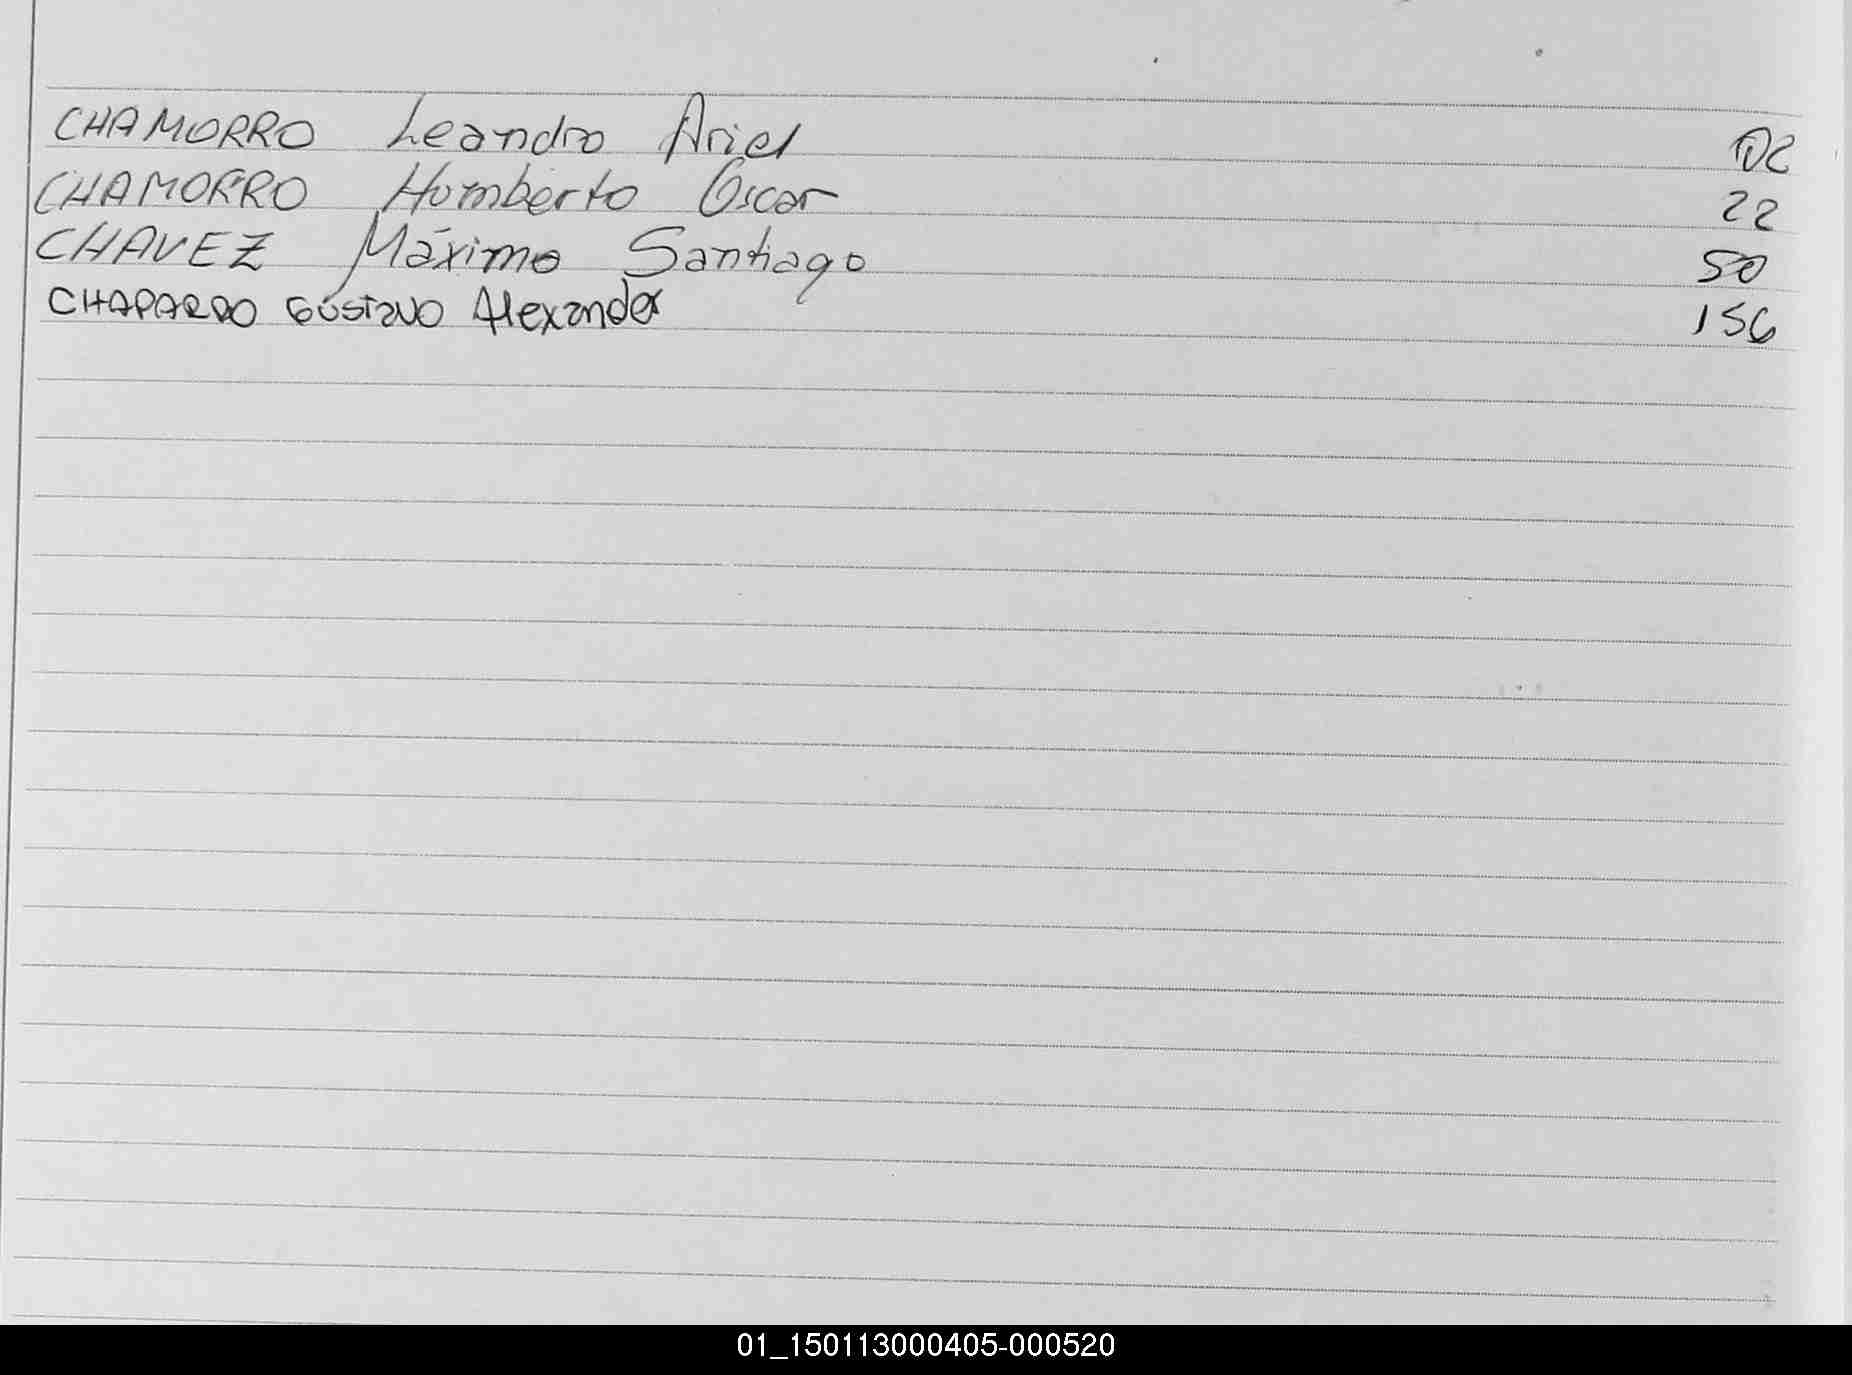 CHAMORRO Leandro Ariel
CHAMORRO Humberto Oscar 22
CHAVEZ Máximo Santiago 50
CHAPARRO GUSTAVO Alexander 156
01_150113000405-000520